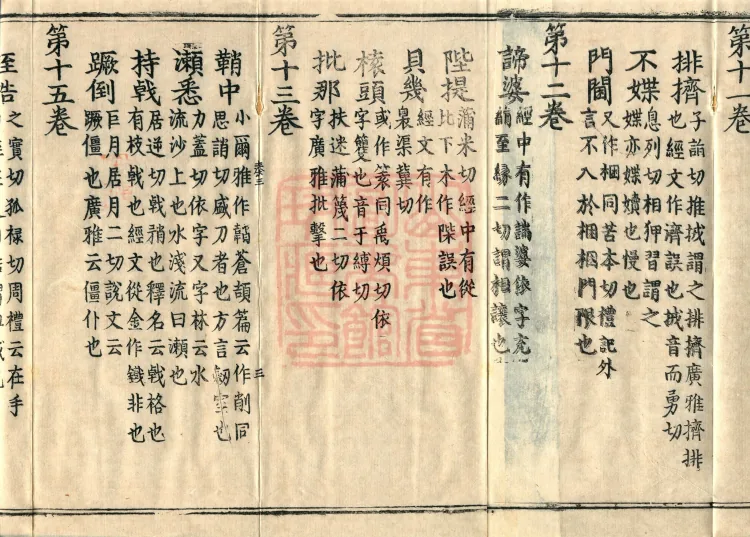 第十一卷
排擠
子詣切推㧡謂之排擠廣雅擠排
也經文作濟誤也㧡音而勇切
不媟
息列切相狎習謂之
媟亦媟嬻也慢也
門閫
又作梱同苦本切禮記外
言不入於梱梱門限也
第十二卷
諦婆
經中有作諯婆依字充
絹至緣二切謂相讓也
陛提
蒲米切經中有從
比下木作誤也
貝幾
經文有作
臮渠冀切
榬頭
或作䈠同禹煩切依
字籰也音于縛切
批那
扶迷蒲篾二切依
字廣雅批擊也
第十三卷
卷三
三
鞘中
小爾雅作韒蒼頡篇云作削同
思誚切盛刀者也方言劔室也
瀨悉
力蓋切依字又字林云水
流沙上也水淺流曰瀨也
持戟
居逆切戟矟也釋名云戟格也
有枝戟也經文從金作非也
蹶倒
巨月居月二切說文云
蹶僵也廣雅云僵仆也
第十五卷
至告
之實切狐祿切周禮云在手